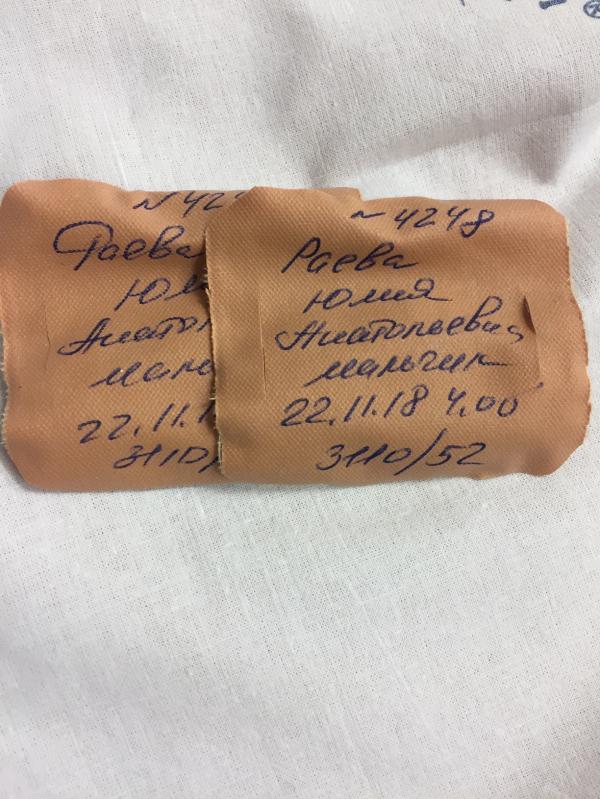 N 424
Раева
Юли
Анатол
маль
22.11.1
3110/
~ 4248
Раева
Юлия
Анатольевна
мальчик
22.11.18 4.00'
3110/52